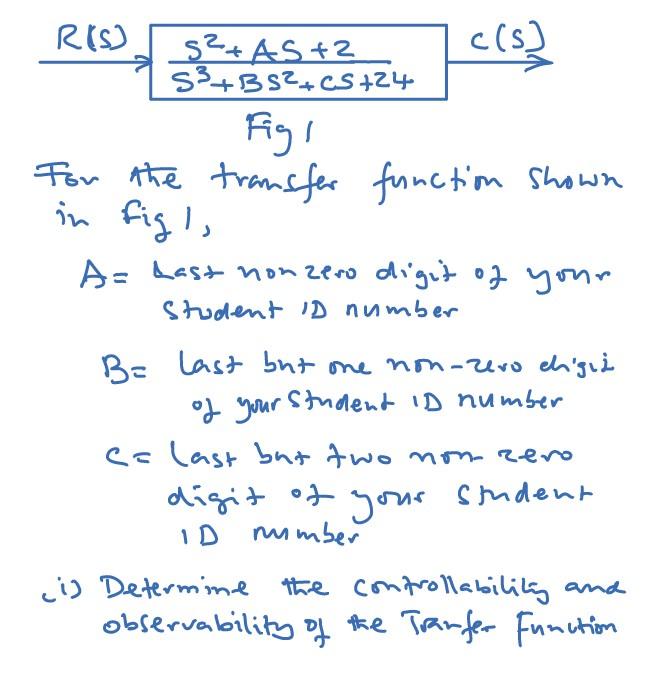 R(S)
S²+AS+2
C(S)
S³+BS²+CS+24
Fig 1
For the transfer function shown
in fig 1,
A= Last nonzero digit of your
student ID number
B= last but one non-zero digit
of your student ID number
C= last but two non zero
digit of your student
ID number
i) Determine the controllability and
observability of the Tranfer Function